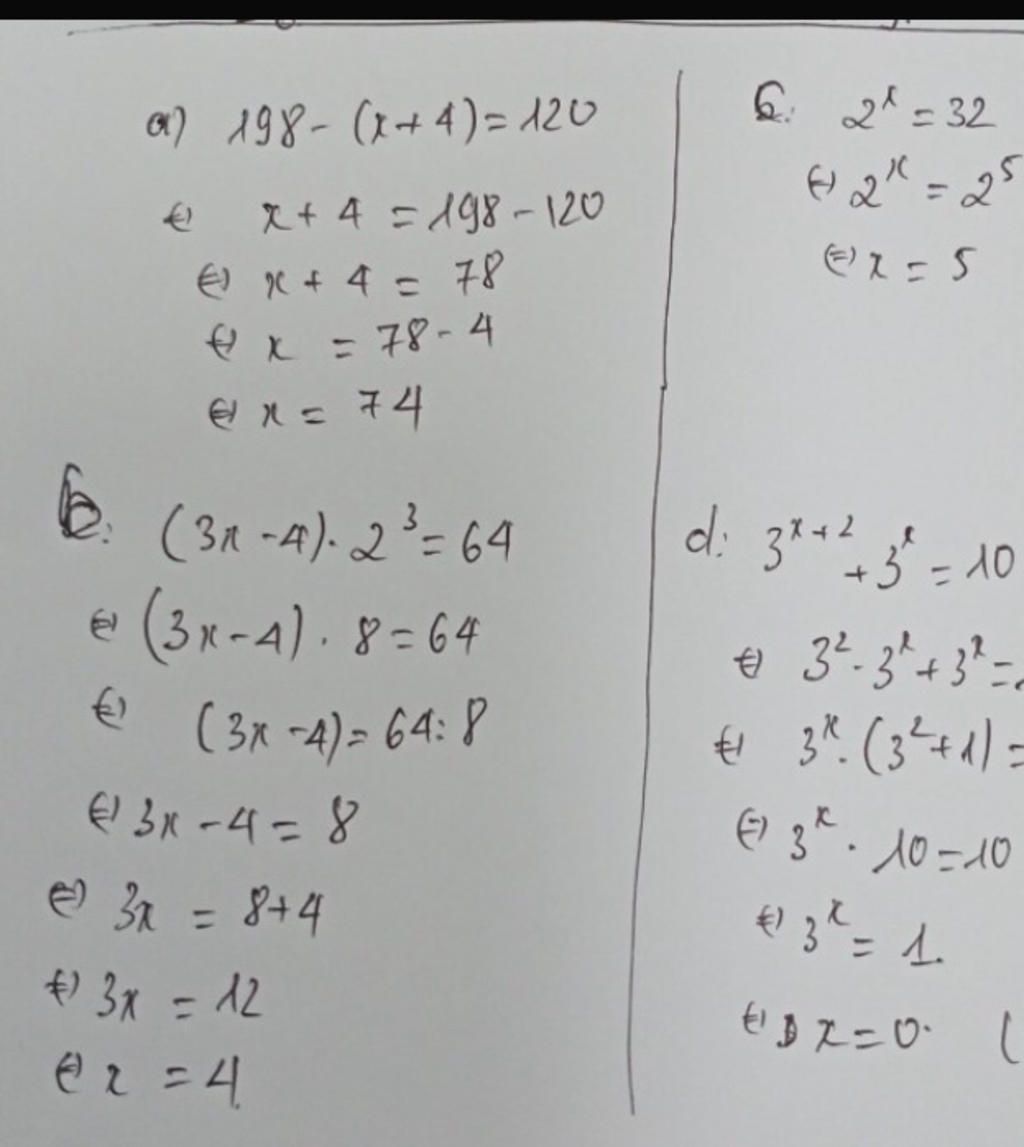 a) 198 - (x + 4) = 120
⇔ x + 4 = 198 - 120
⇔ x + 4 = 78
⇔ x = 78 - 4
⇔ x = 74
b: (3x - 4) . 2³ = 64
⇔ (3x - 4) . 8 = 64
⇔ (3x - 4) = 64 : 8
⇔ 3x - 4 = 8
⇔ 3x = 8 + 4
⇔ 3x = 12
⇔ x = 4
c: 2ˣ = 32
⇔ 2ˣ = 2⁵
⇔ x = 5
d: 3ˣ⁺² + 3ˣ = 10
⇔ 3² . 3ˣ + 3ˣ =
⇔ 3ˣ . (3² + 1) =
⇔ 3ˣ . 10 = 10
⇔ 3ˣ = 1.
⇔ x = 0. (